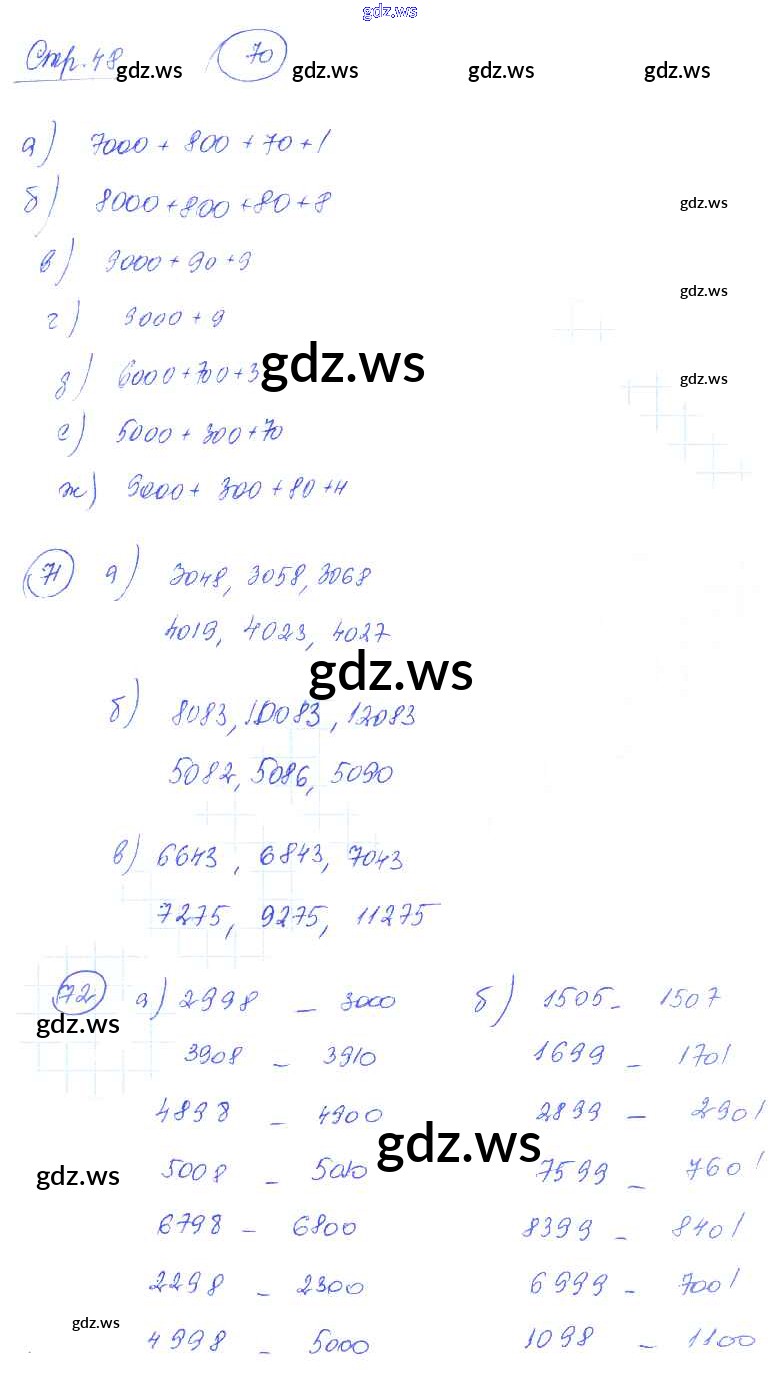 gdz.ws
Стр. 48 70
gdz.ws gdz.ws gdz.ws gdz.ws
а) 7000 + 800 + 70 + 1
б) 8000 + 800 + 80 + 8
gdz.ws
в) 9000 + 90 + 9
gdz.ws
г) 9000 + 9
д) 6000 + 700 + 3
gdz.ws
gdz.ws
е) 5000 + 300 + 70
ж) 9000 + 300 + 80 + 4
71 а) 3048, 3058, 3068
4019, 4023, 4027
gdz.ws
б) 8083, 10083, 12083
5082, 5086, 5090
в) 6643, 6843, 7043
7275, 9275, 11275
72 а) 2998 – 3000 б) 1505 – 1507
gdz.ws
3908 – 3910 1699 – 1701
4898 – 4900 2899 – 2901
gdz.ws
5008 – 5010 7599 – 7601
gdz.ws
6798 – 6800 8399 – 8401
2298 – 2300 6999 – 7001
gdz.ws
4998 – 5000 1098 – 1100